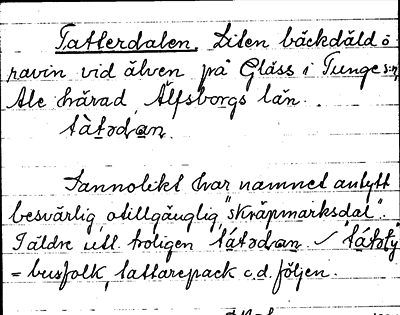 Tatterdalen. Liten bäckdäld o
ravin vid älven på Gläss i Tunge s:n,
Ale härad, Älfsborgs län.
tàtədan.
Sannolikt har namnet antytt
besvärlig, otillgänglig, "skräpmarksdal".
I äldre utt. troligen tátədan
= busfolk, tattarepack c.d. följen.